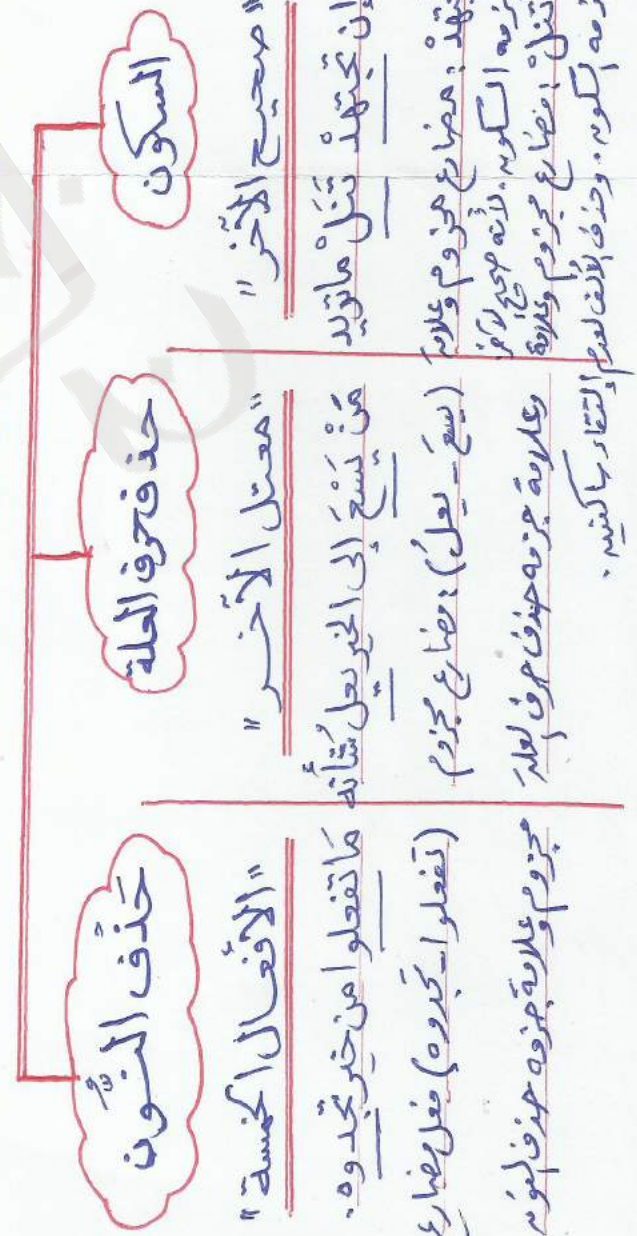 السكون
"صحيح الآخر"
إن تجتهدْ تَنَلْ ما تريد
تهدْ: مضارع مجزوم وعلامة
زمه السكون. لأنه صحيح الآخر
تنلْ: مضارع مجزوم وعلامة
زمه السكون. وحذف الألف لعدم إلتقاء ساكنين.
حذف حرف العلة
"معتل الآخر"
مَنْ يَسْعَ إلى الخير يعل شأنه
(يسعَ - يعلُ): مضارع مجزوم
وعلامة جزمه حذف حرف العلة
حَذْف النُّون
"الأفعال الخمسة"
مَا تفعلوا من خير تجدوه.
(تفعلوا - تجدوه) فعل مضارع
مجزوم وعلامة جزمه حذف النون